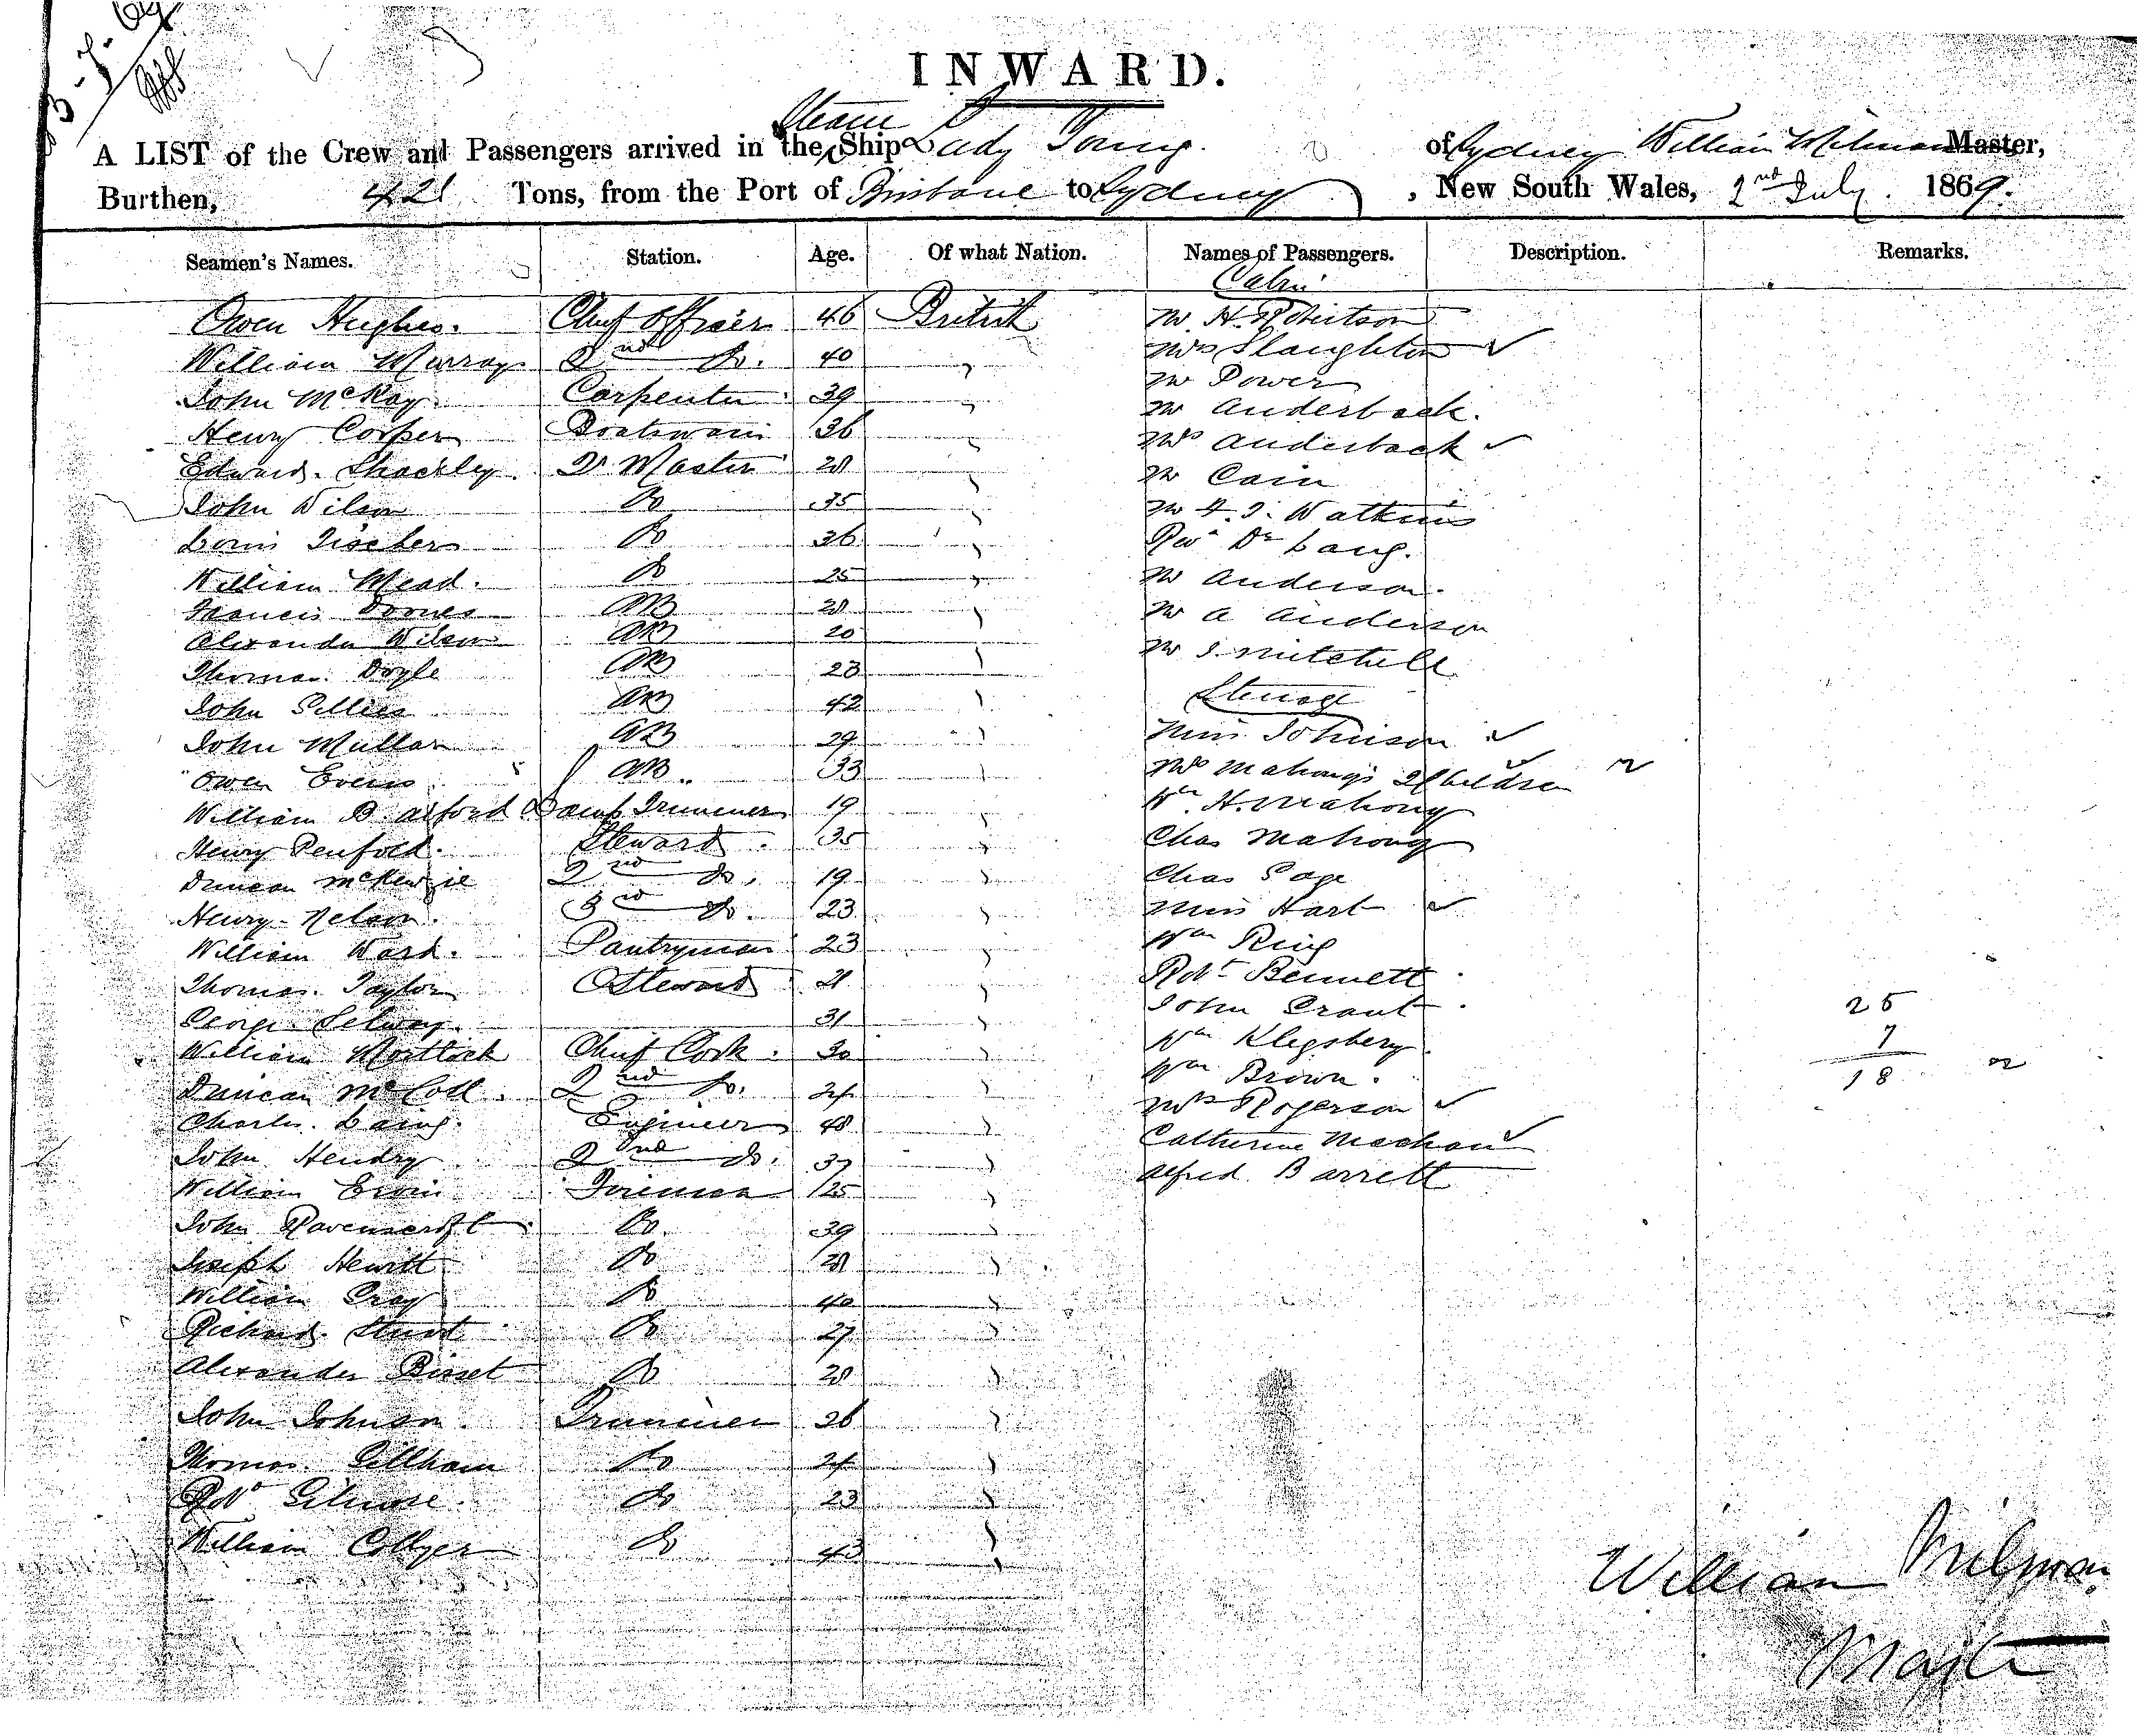 INWARD.
Steam
A LIST of the Crew and Passengers arrived in the Ship Lady Young. of Sydney William Milman Master,
Burthen, 421 Tons, from the Port of Brisbane to Sydney , New South Wales, 2nd July. 1869.
Seamen's Names. Station. Age. Of what Nation. Names of Passengers. Description. Remarks.
Cabin
Owen Hughes. Chief Officer 46 British Mr H. Robertson
William Murray 2nd Do. 40 " Mrs Slaughter ✓
John McKay Carpenter 39 " Mr Power
Mr Anderback.
Henry Cooper Boatswain 36 " Mrs Anderback ✓
Edward Shackley Qr Master 28 " Mr Cain
John Wilson Do 35 " Mr Watkins
Louis Fischer Do 36 " Revd Dr Lang.
William Mead. Do 25 " Mr Anderson.
Francis AB 28 " Mr A Anderson
Alexander Wilson AB 20
Thomas Doyle AB 23 " Mr J. Mitchell
John Gillies AB 42 " Steerage
John Mullar AB 29 " Miss Johnson ✓
Owen Evans AB. 33 " Mrs Mahony & 2 Children ✓
William Balford Lamp Trimmer 19 " Wm H. Mahony
Henry Penfold. Steward. 35 " Chas Mahony
Duncan McKenzie 2nd Do. 19 " Chas Page
Henry Nelson. 3rd Do. 23 " Miss Hart ✓
William Ward. Pantryman 23 " Wm Ring
Thomas Taylor Steward 21 " Robt Bennett
George Selway. 31 " John Grant 25
William Mortlock Chief Cook. 30 " Wm 7
Duncan McColl. 2nd Do. 24 " Wm Brown. 18
Charles Laing. Engineer 48 " Mrs Rogerson ✓
John Hendry 2nd Do. 37 " Catherine ✓
William Fireman 25 " Alfred Barrett
John Ravenscroft Do. 39 "
Joseph Hewitt Do 28 "
William Gray Do 40 "
Richard Do 27 "
Alexander Bisset Do 28 "
John Johnson Trimmer 26 "
Thomas Gillham Do 24 "
Robt Gilmore Do 23 "
William Collyer Do 43 "
William Milman
Master